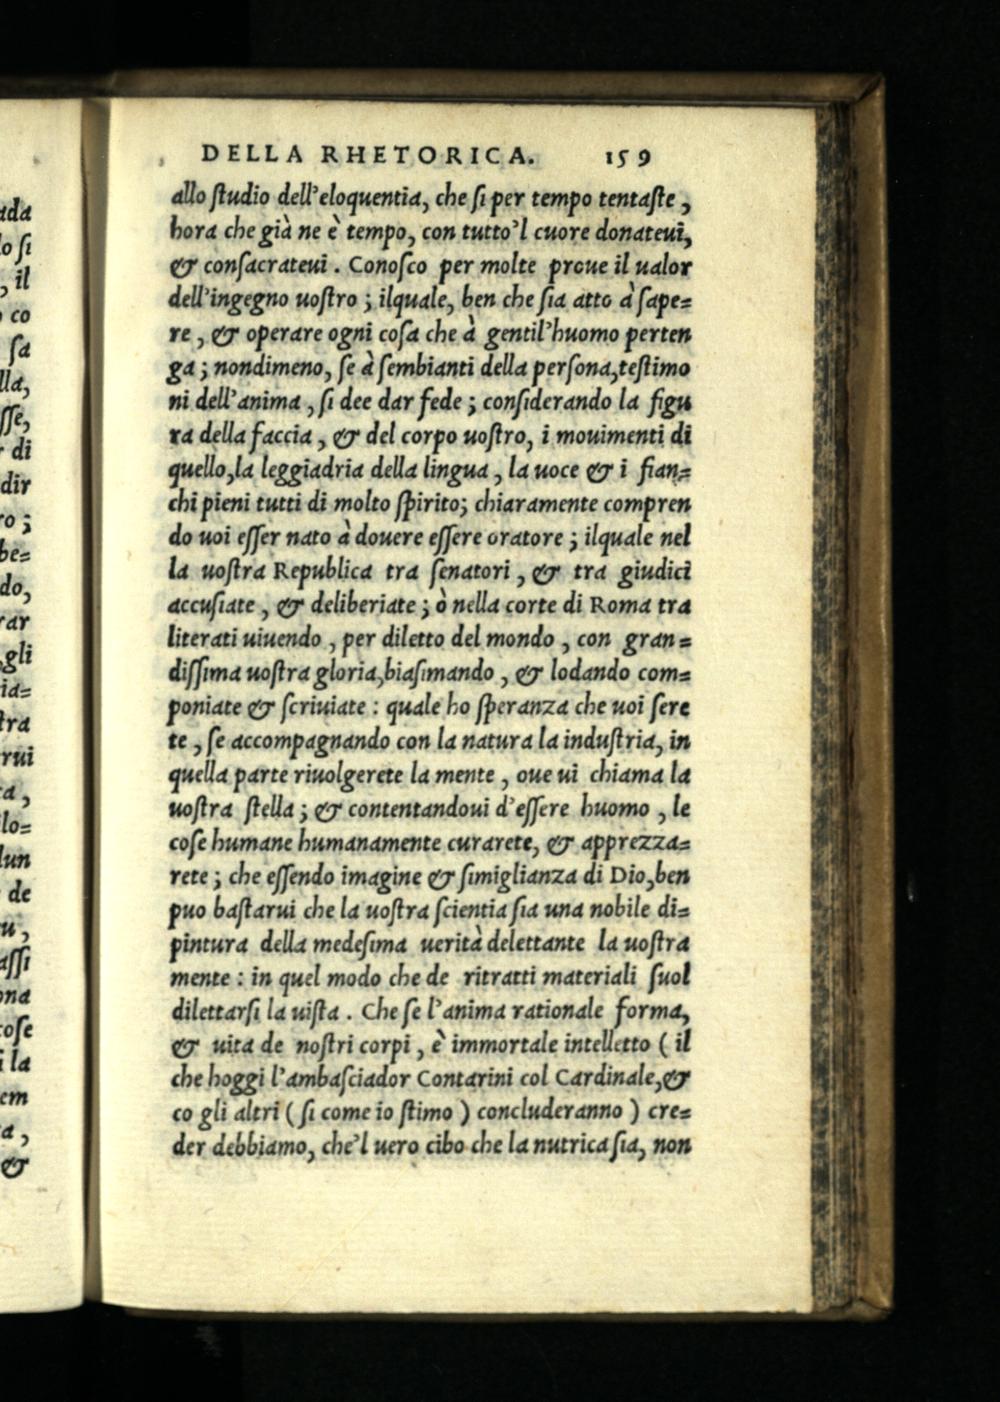 DELLA RHETORICA. 159
allo ſtudio dell'eloquentia, che ſi per tempo tentaſte,
hora che già ne è tempo, con tutto'l cuore donateui,
& conſacrateui. Conoſco per molte proue il ualor
dell'ingegno uoſtro; ilquale, ben che ſia atto à ſape=
re, & operare ogni coſa che à gentil'huomo perten
ga; nondimeno, ſe à ſembianti della perſona, teſtimo
ni dell'anima, ſi dee dar fede; conſiderando la figu
ra della faccia, & del corpo uoſtro, i mouimenti di
quello, la leggiadria della lingua, la uoce & i fian=
chi pieni tutti di molto ſpirito; chiaramente compren
do uoi eſſer nato à douere eſſere oratore; ilquale nel
la uoſtra Republica tra ſenatori, & tra giudici
accuſiate, & deliberiate; ò nella corte di Roma tra
literati uiuendo, per diletto del mondo, con gran=
diſſima uoſtra gloria, biaſimando, & lodando com=
poniate & ſcriuiate: quale ho ſperanza che uoi ſere
te, ſe accompagnando con la natura la induſtria, in
quella parte riuolgerete la mente, oue ui chiama la
uoſtra ſtella; & contentandoui d'eſſere huomo, le
coſe humane humanamente curarete, & apprezza=
rete; che eſſendo imagine & ſimiglianza di Dio, ben
puo baſtarui che la uoſtra ſcientia ſia una nobile di=
pintura della medeſima uerità delettante la uoſtra
mente: in quel modo che de ritratti materiali ſuol
dilettarſi la uiſta. Che ſe l'anima rationale forma,
& uita de noſtri corpi, è immortale intelletto (il
che hoggi l'ambaſciador Contarini col Cardinale, &
co gli altri (ſi come io ſtimo) concluderanno) cre=
der debbiamo, che'l uero cibo che la nutrica ſia, non